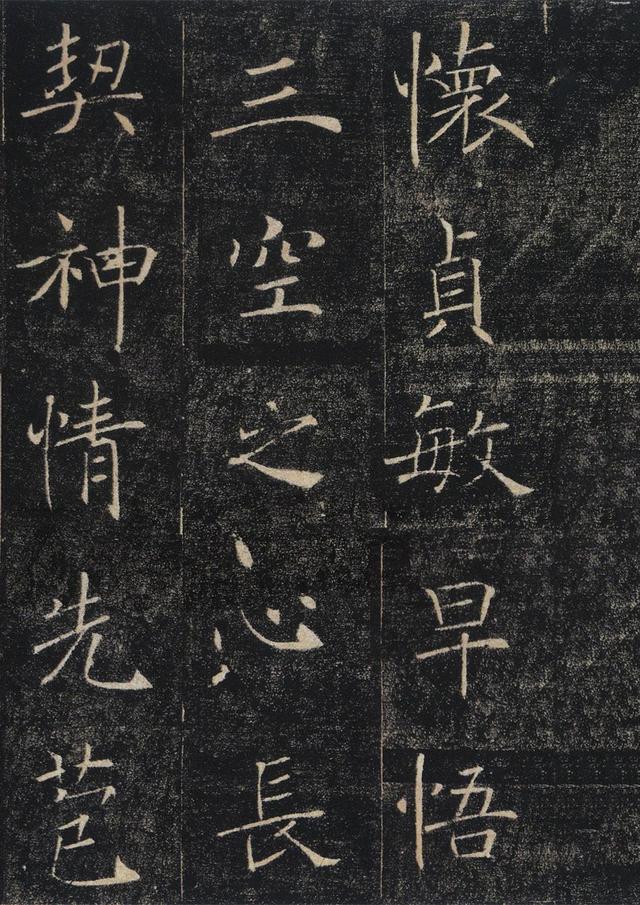 懷貞敏早悟
三空之心長
契神情先苞